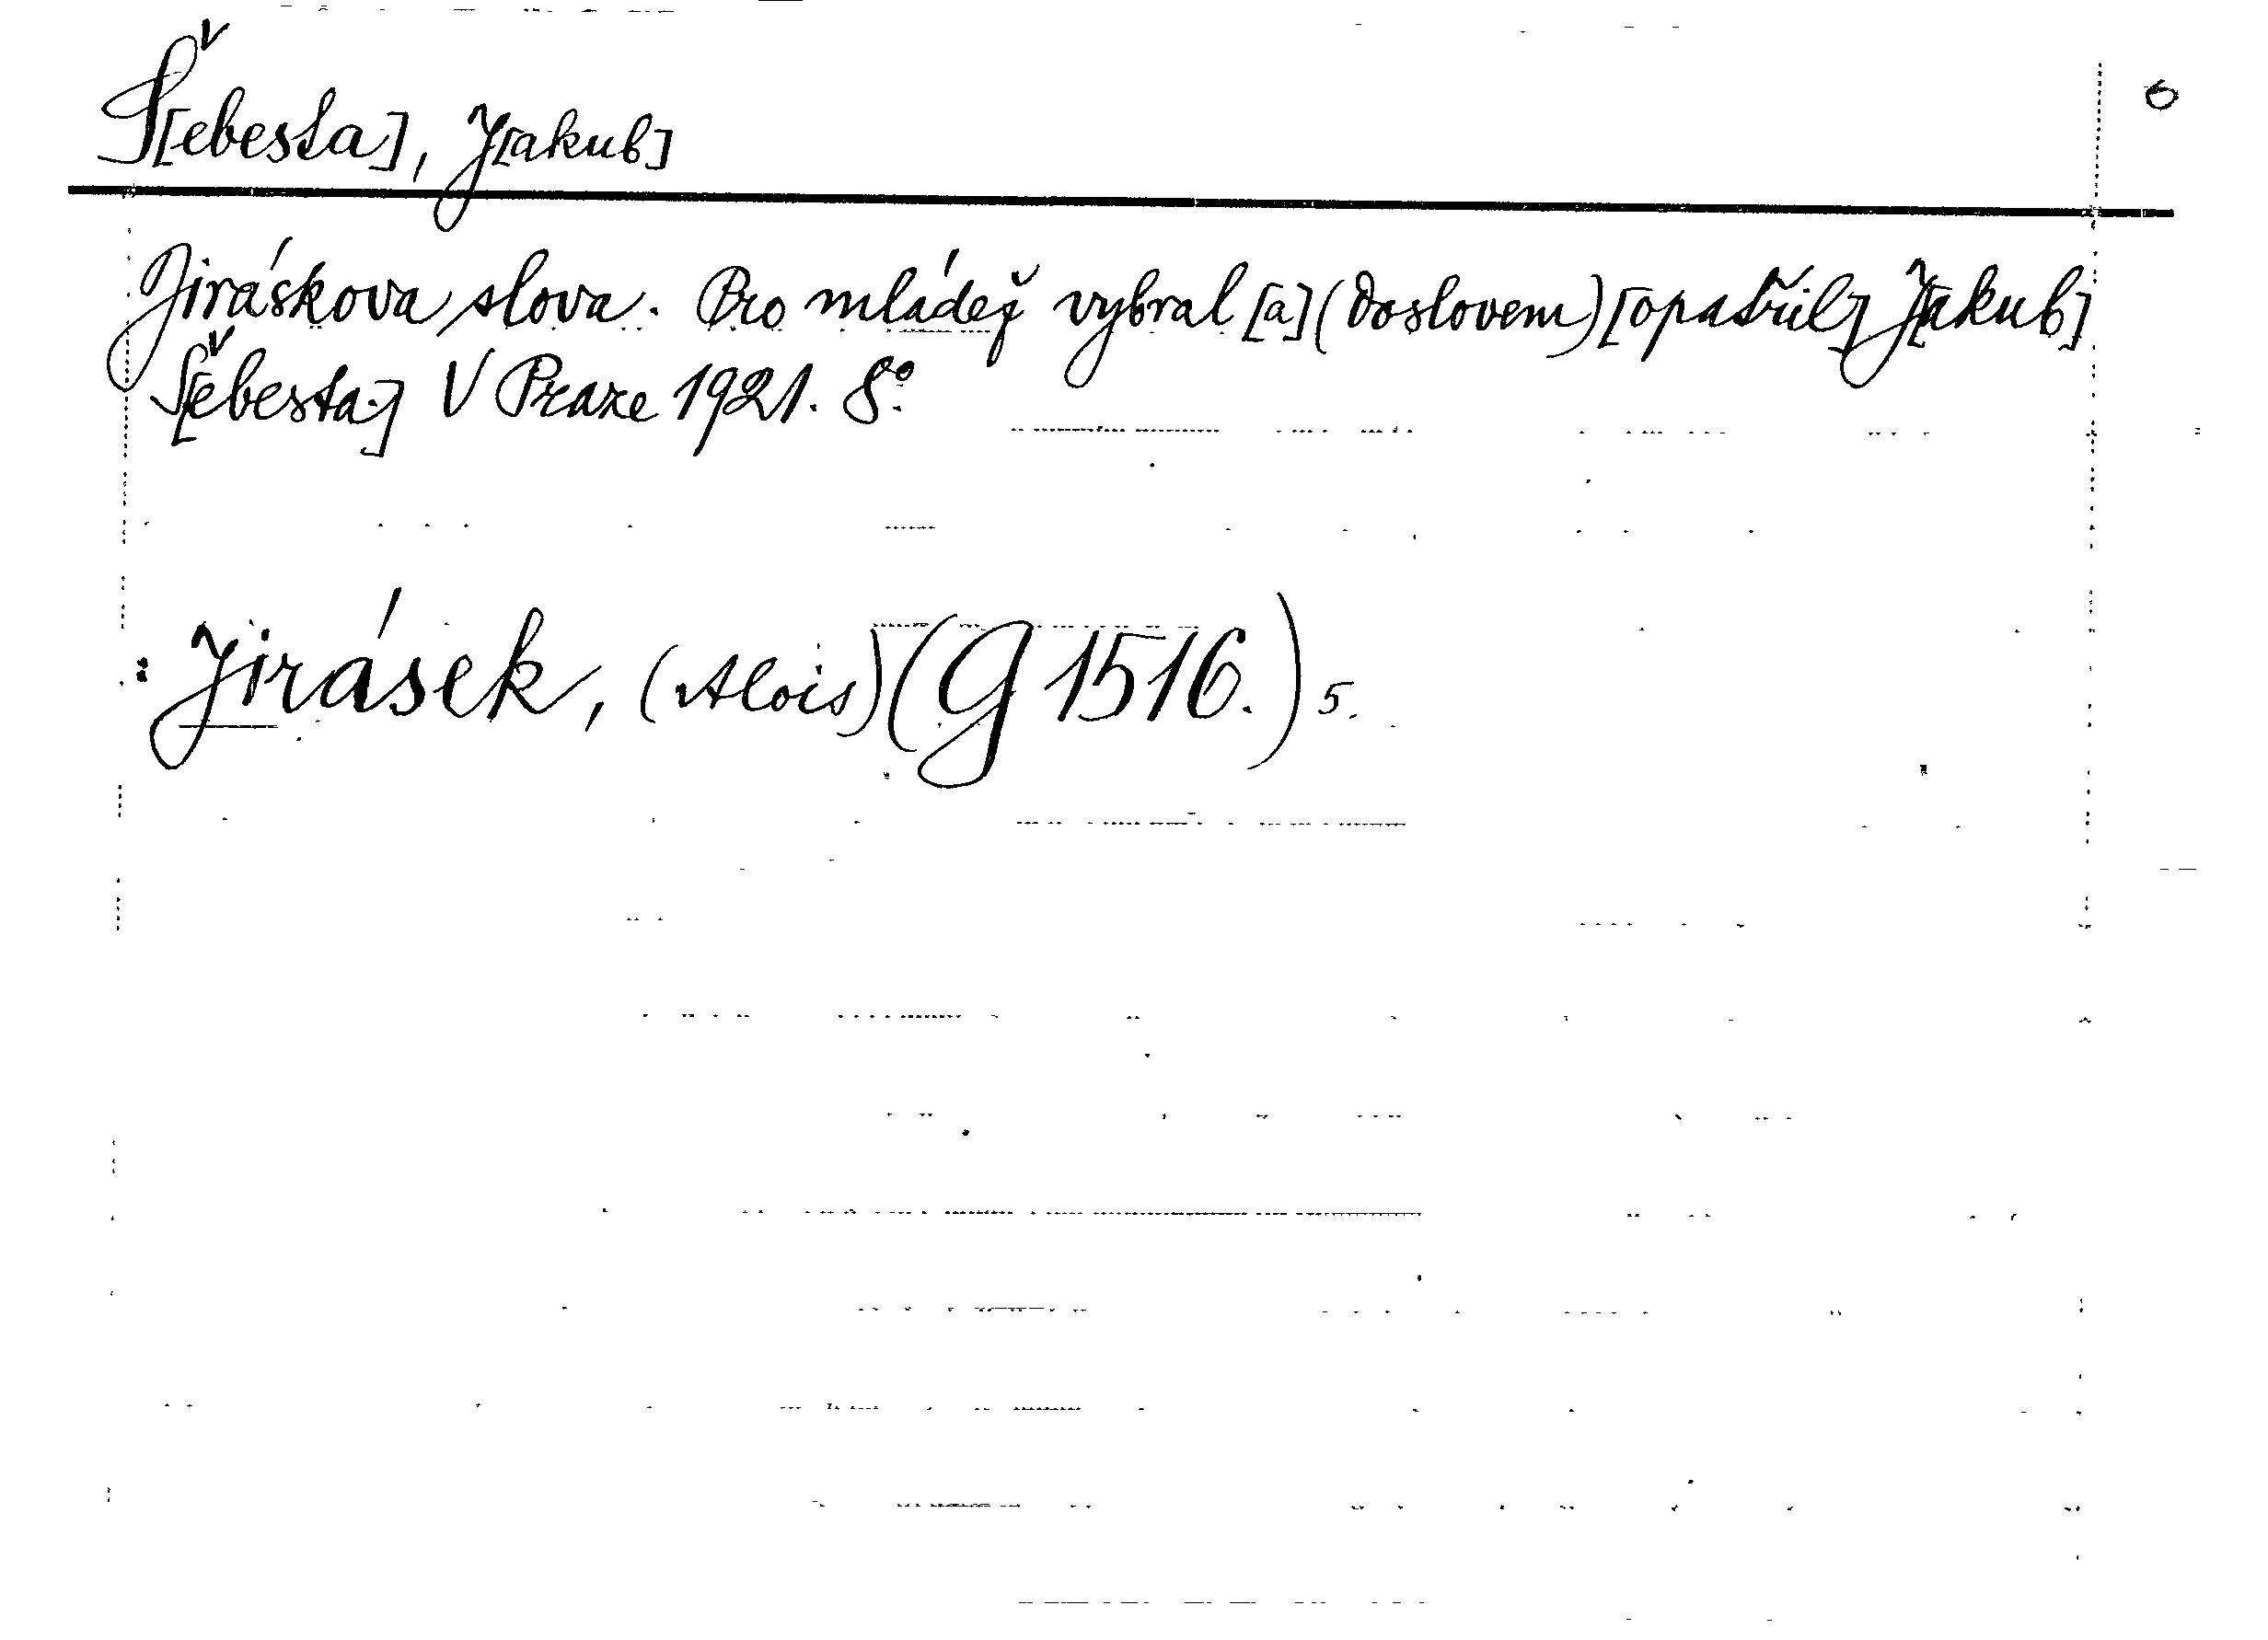 Š[ebesta], J[akub]
Jiráskova slova. Pro mládež vybral [a] (doslovem) [opatřil] J[akub]
Š[ebesta.] V Praze 1921. 8°.
: Jirásek, (Alois) (G 1516.) 5.